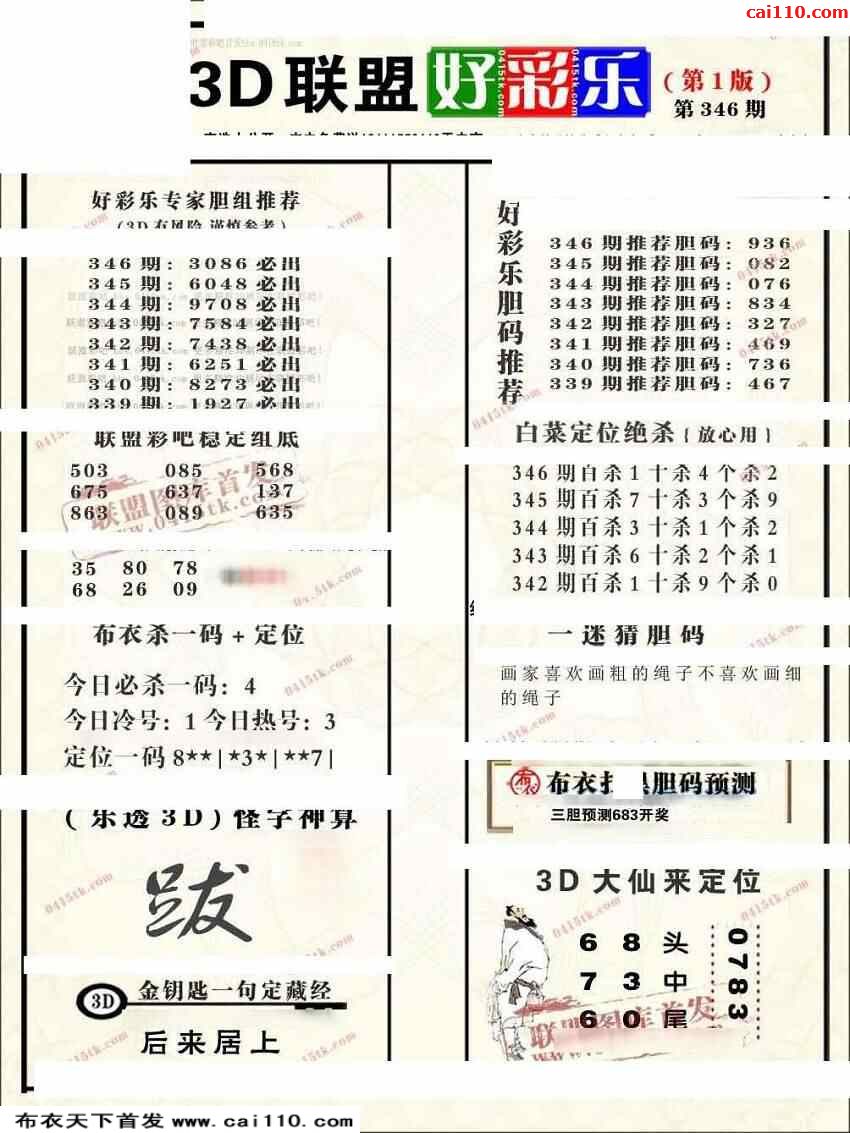 cai110.com
3D联盟 好彩乐
(第1版)
第346期
好彩乐专家胆组推荐
(3D有风险 谨慎参考)
346期: 3086必出
345期: 6048必出
344期: 9708必出
343期: 7584必出
342期: 7438必出
341期: 6251必出
340期: 8273必出
339期: 1927必出
联盟彩吧稳定组底
503 085 568
675 637 137
863 089 635
35 80 78
68 26 09
布衣杀一码+定位
今日必杀一码: 4
今日冷号: 1 今日热号: 3
定位一码 8**|*3*|**7|
(乐透3D)怪字神算
跋
3D 金钥匙一句定藏经
后来居上
好彩乐胆码推荐
346期推荐胆码: 936
345期推荐胆码: 082
344期推荐胆码: 076
343期推荐胆码: 834
342期推荐胆码: 327
341期推荐胆码: 469
340期推荐胆码: 736
339期推荐胆码: 467
白菜定位绝杀{放心用}
346期百杀1十杀4个杀2
345期百杀7十杀3个杀9
344期百杀3十杀1个杀2
343期百杀6十杀2个杀1
342期百杀1十杀9个杀0
一迷猜胆码
画家喜欢画粗的绳子不喜欢画细
的绳子
布衣 胆码预测
三胆预测683开奖
3D大仙来定位
6 8 头
7 3 中
6 0 尾
0783
联盟图库首发
www.0415tk.com
布衣天下首发 www.cai110.com